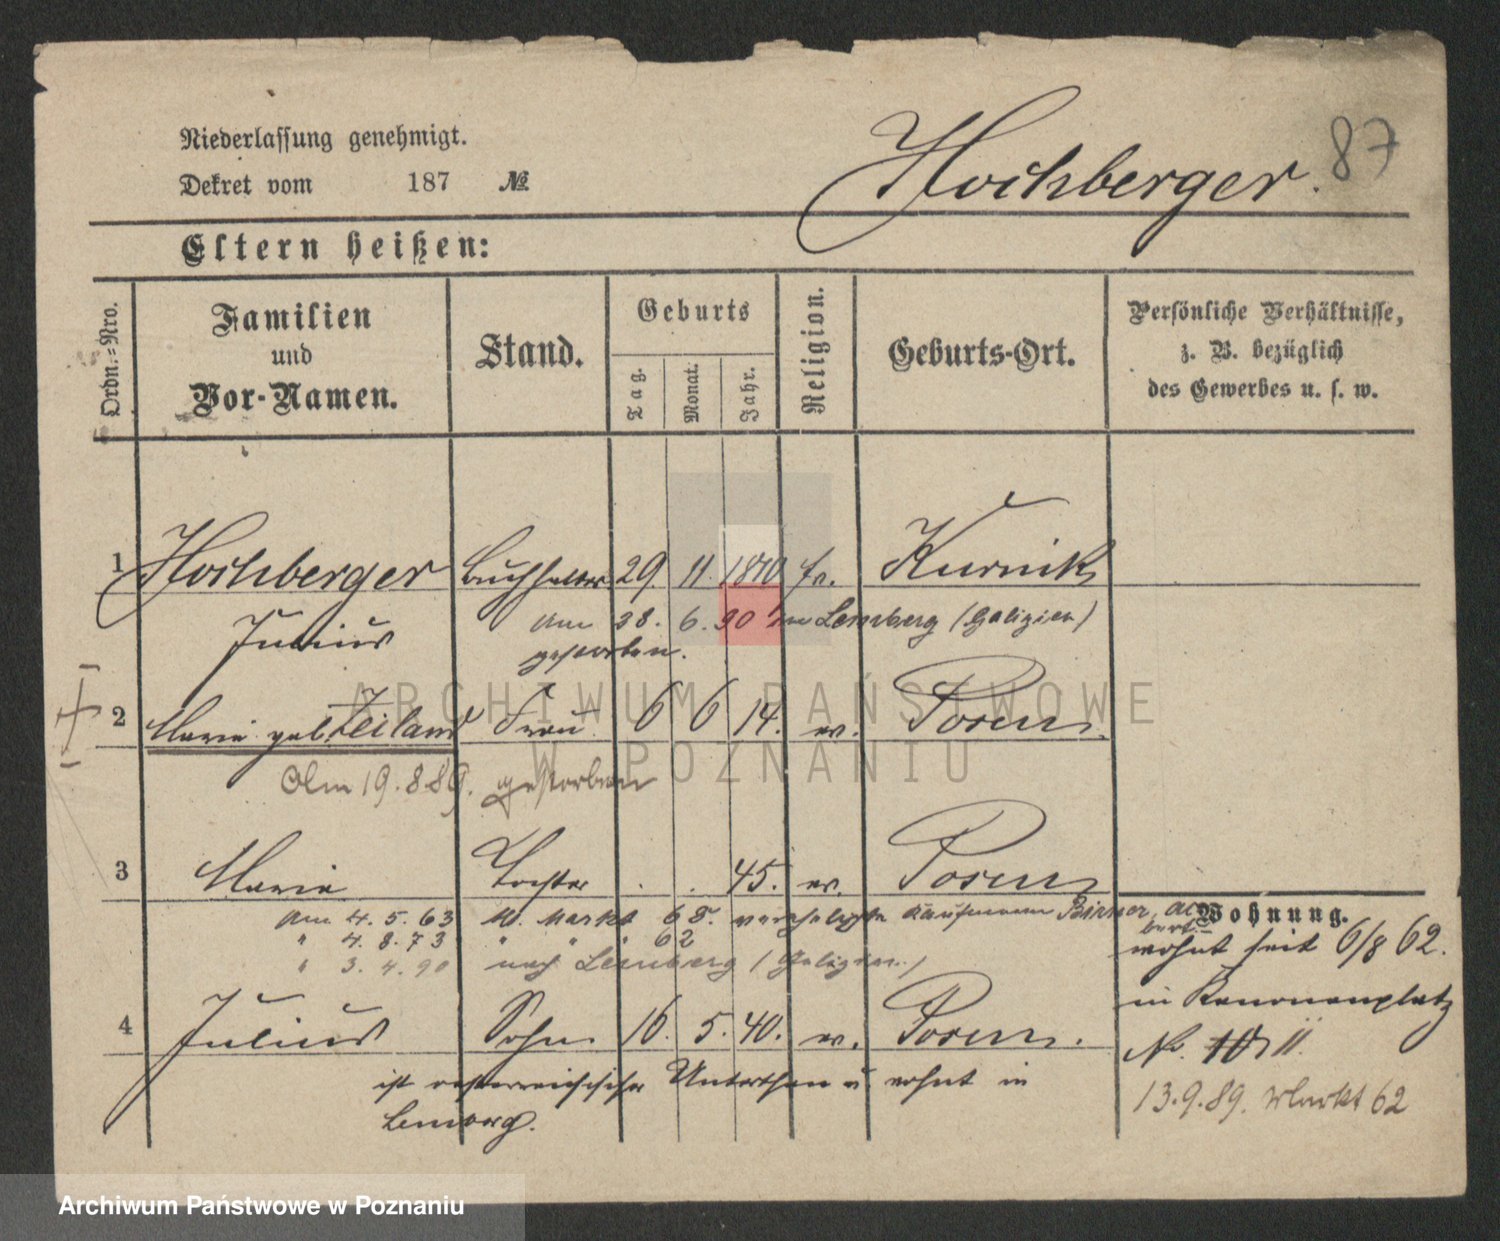 87
Niederlassung genehmigt.
Dekret vom 187 №
Hochberger.
Eltern heißen:
Ordn.=Nro.
Familien
und
Vor-Namen.
Stand.
Geburts
Tag.
Monat.
Jahr.
Religion.
Geburts-Ort.
Persönliche Verhältnisse,
z. B. bezüglich
des Gewerbes u. s. w.
1 Hochberger Buchhalter 29 11. 1810 Kurnik
Julius am 28. 6. 90 in Lemberg (Galizien)
gestorben.
2 Marie geb. Zeiland Frau 6 6 14. ev. Posen
Am 19.8.89. gestorben
3 Marie Tochter . . 45. ev. Posen
am 4. 5. 63 Markt 68. Kaufmann
" 4. 8. 73 " " 62
" 3. 4. 90 nach Lemberg (Galizien)
4 Julius Sohn 16. 5. 40. ev. Posen.
ist oesterreichischer Unterthan u. wohnt in
Lemberg.
Wohnung.
wohnt seit 6/8 62.
in Kanonenplatz
No. 10 II.
13.9.89. Markt 62
ARCHIWUM PAŃSTWOWE
W POZNANIU
Archiwum Państwowe w Poznaniu